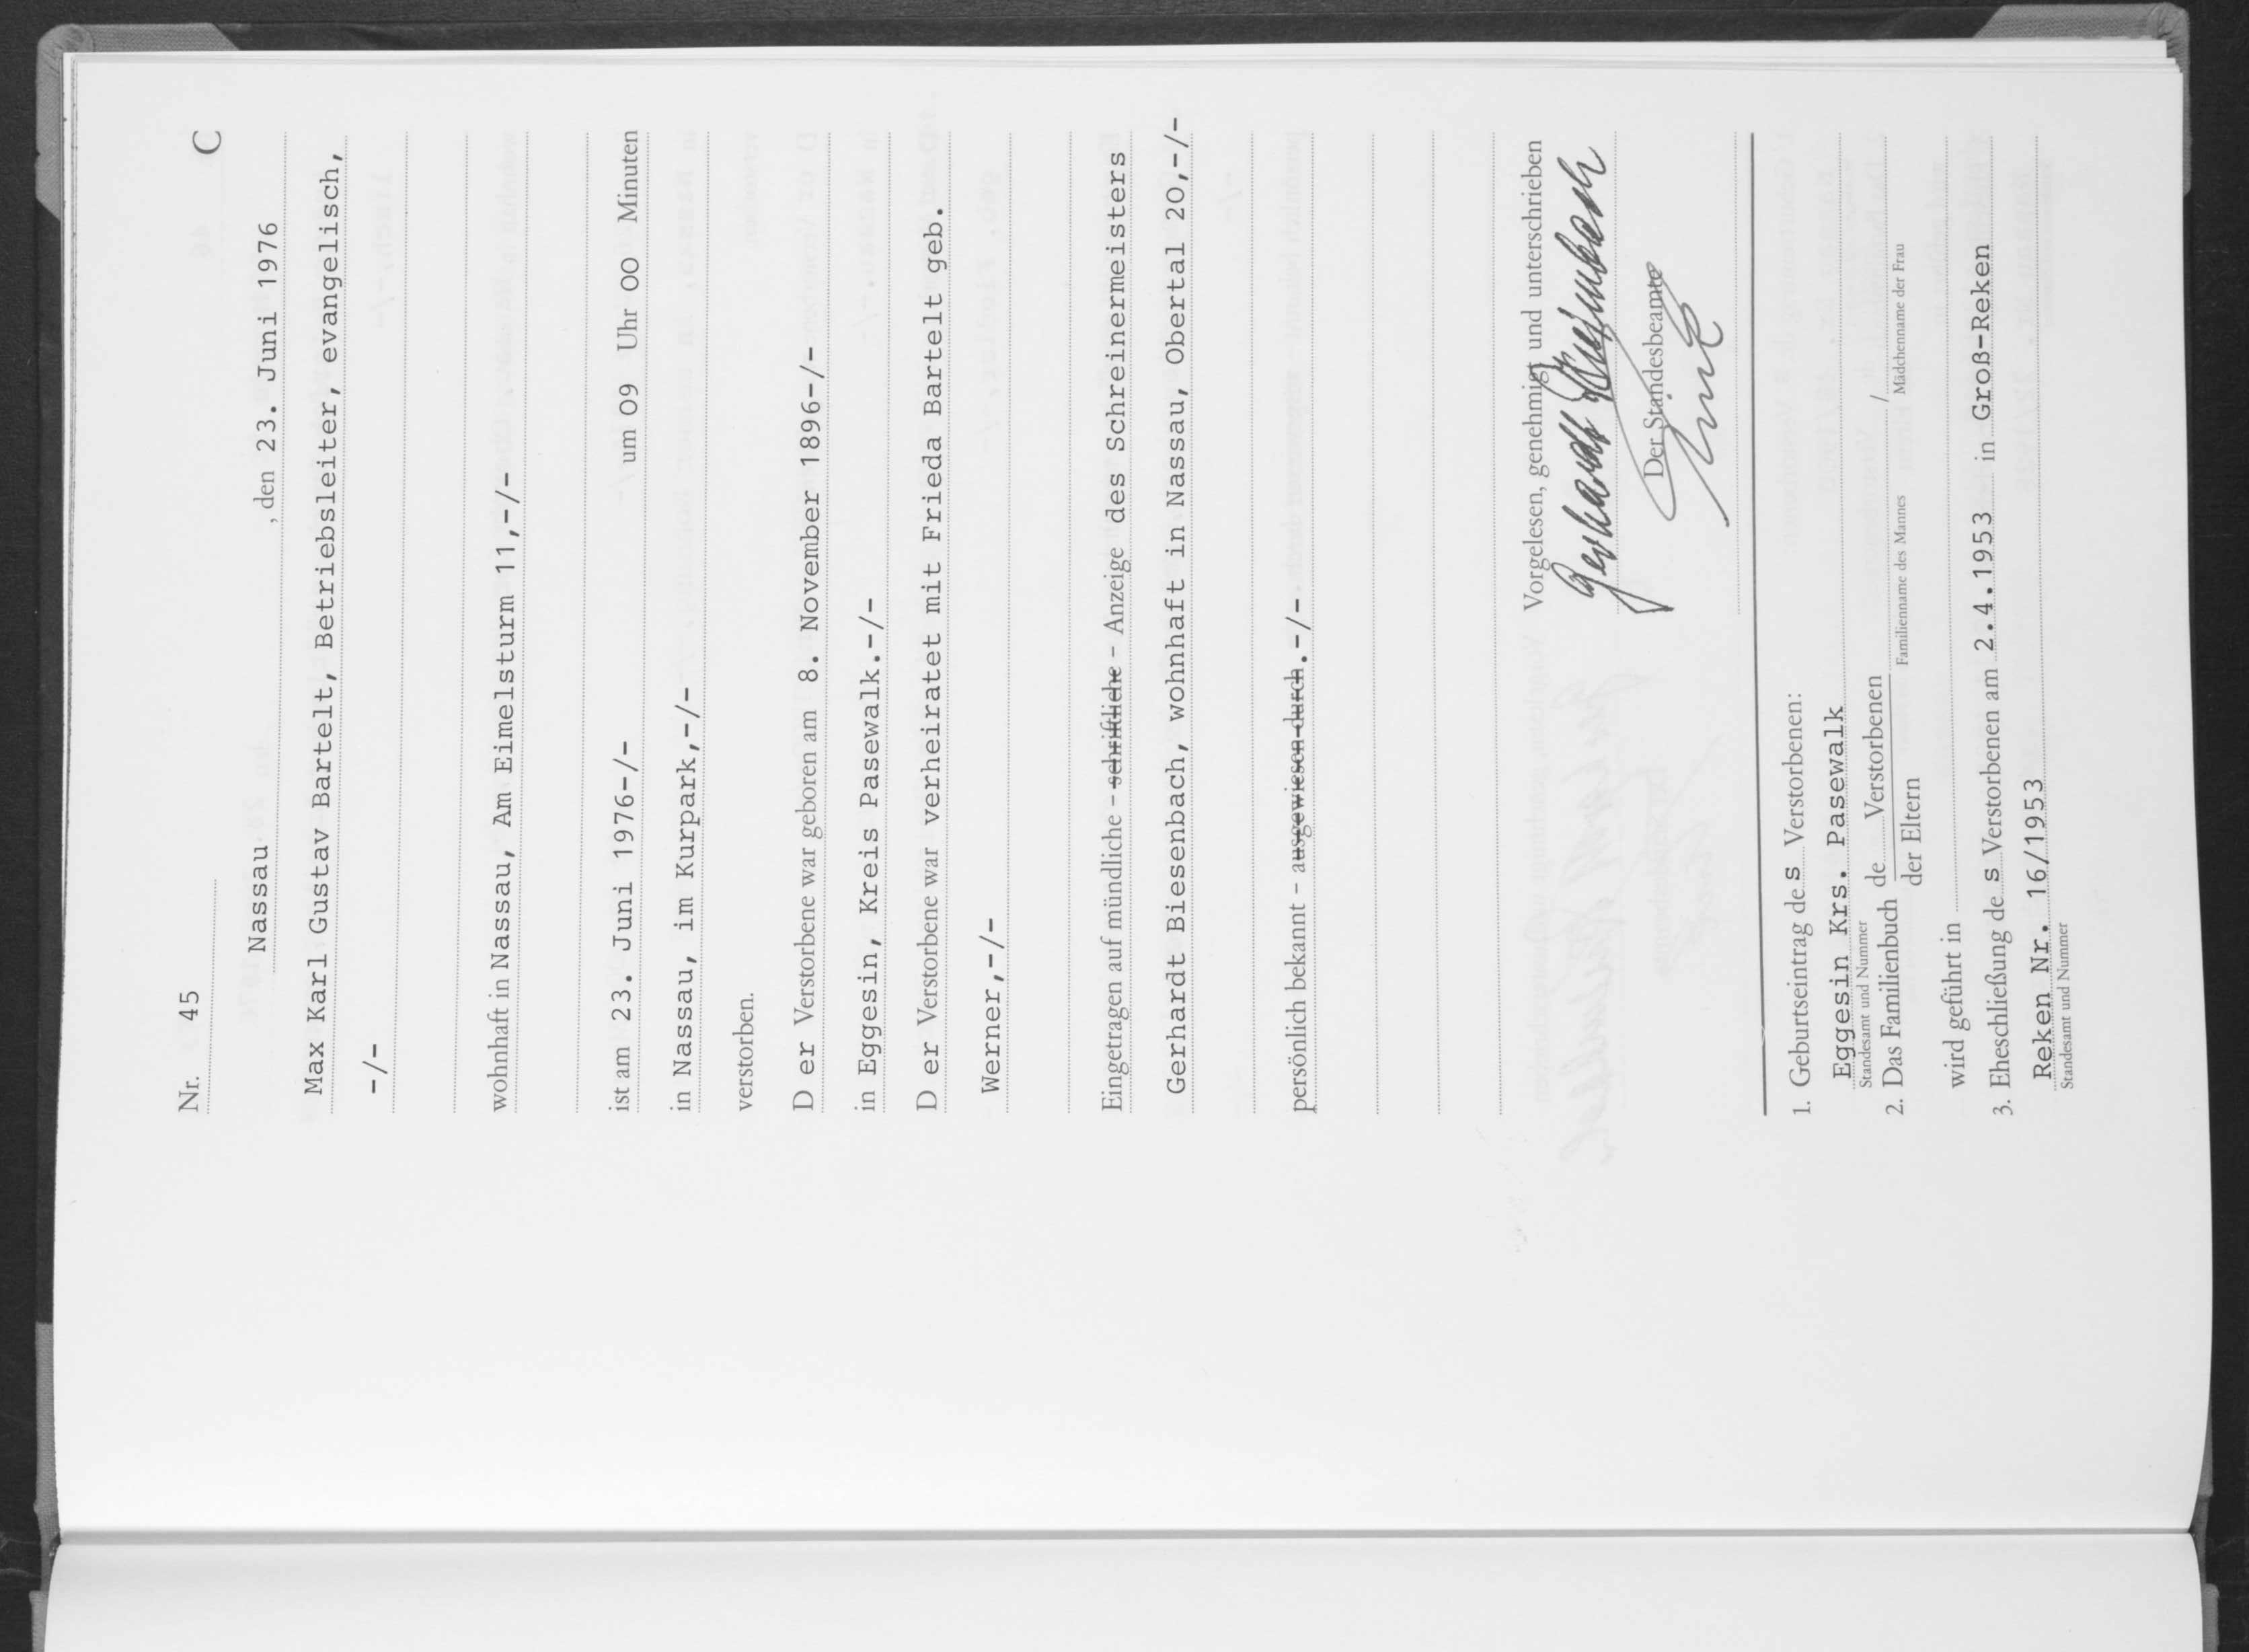 Nr. 45 C
Nassau, den 23. Juni 1976
Max Karl Gustav Bartelt, Betriebsleiter, evangelisch,
-/-
wohnhaft in Nassau, Am Eimelsturm 11,-/-
ist am 23. Juni 1976-/- um 09 Uhr 00 Minuten
in Nassau, im Kurpark,-/-
verstorben.
D er Verstorbene war geboren am 8. November 1896-/-
in Eggesin, Kreis Pasewalk.-/-
D er Verstorbene war verheiratet mit Frieda Bartelt geb.
Werner,-/-
Eingetragen auf mündliche - schriftliche - Anzeige des Schreinermeisters
Gerhardt Biesenbach, wohnhaft in Nassau, Obertal 20,-/-
persönlich bekannt - ausgewiesen durch.-/-
Vorgelesen, genehmigt und unterschrieben
Gerhardt Biesenbach
Der Standesbeamte
1. Geburtseintrag des Verstorbenen:
Eggesin Krs. Pasewalk
Standesamt und Nummer
2. Das Familienbuch de Verstorbenen /
der Eltern Familienname des Mannes Mädchenname der Frau
wird geführt in
3. Eheschließung des Verstorbenen am 2.4.1953 in Groß-Reken
Reken Nr. 16/1953
Standesamt und Nummer